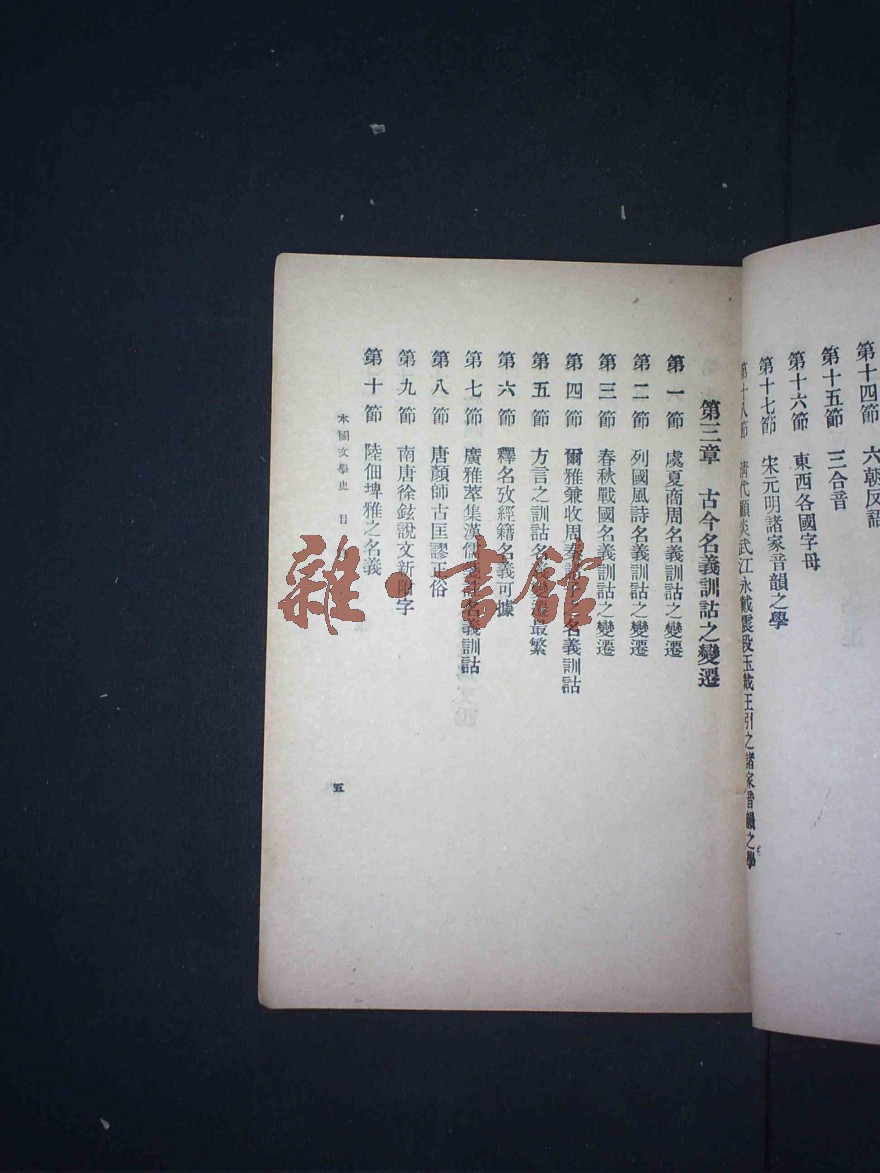 第十四節 六朝反語
第十五節 三合音
第十六節 東西各國字母
第十七節 宋元明諸家音韻之學
第十八節 清代顧炎武江永戴震段玉裁王引之諸家音韻之學
第三章 古今名義訓詁之變遷
第一節 虞夏商周名義訓詁之變遷
第二節 列國風詩名義訓詁之變遷
第三節 春秋戰國名義訓詁之變遷
第四節 爾雅兼收周秦 之名義訓詁
第五節 方言之訓詁名義變遷最繁
第六節 釋名攷經籍名義可據
第七節 廣雅萃集漢儒 名義訓詁
第八節 唐顏師古匡謬正俗
第九節 南唐徐鉉說文新附字
第十節 陸佃埤雅之名義
本國文學史 目
五
雜·書館